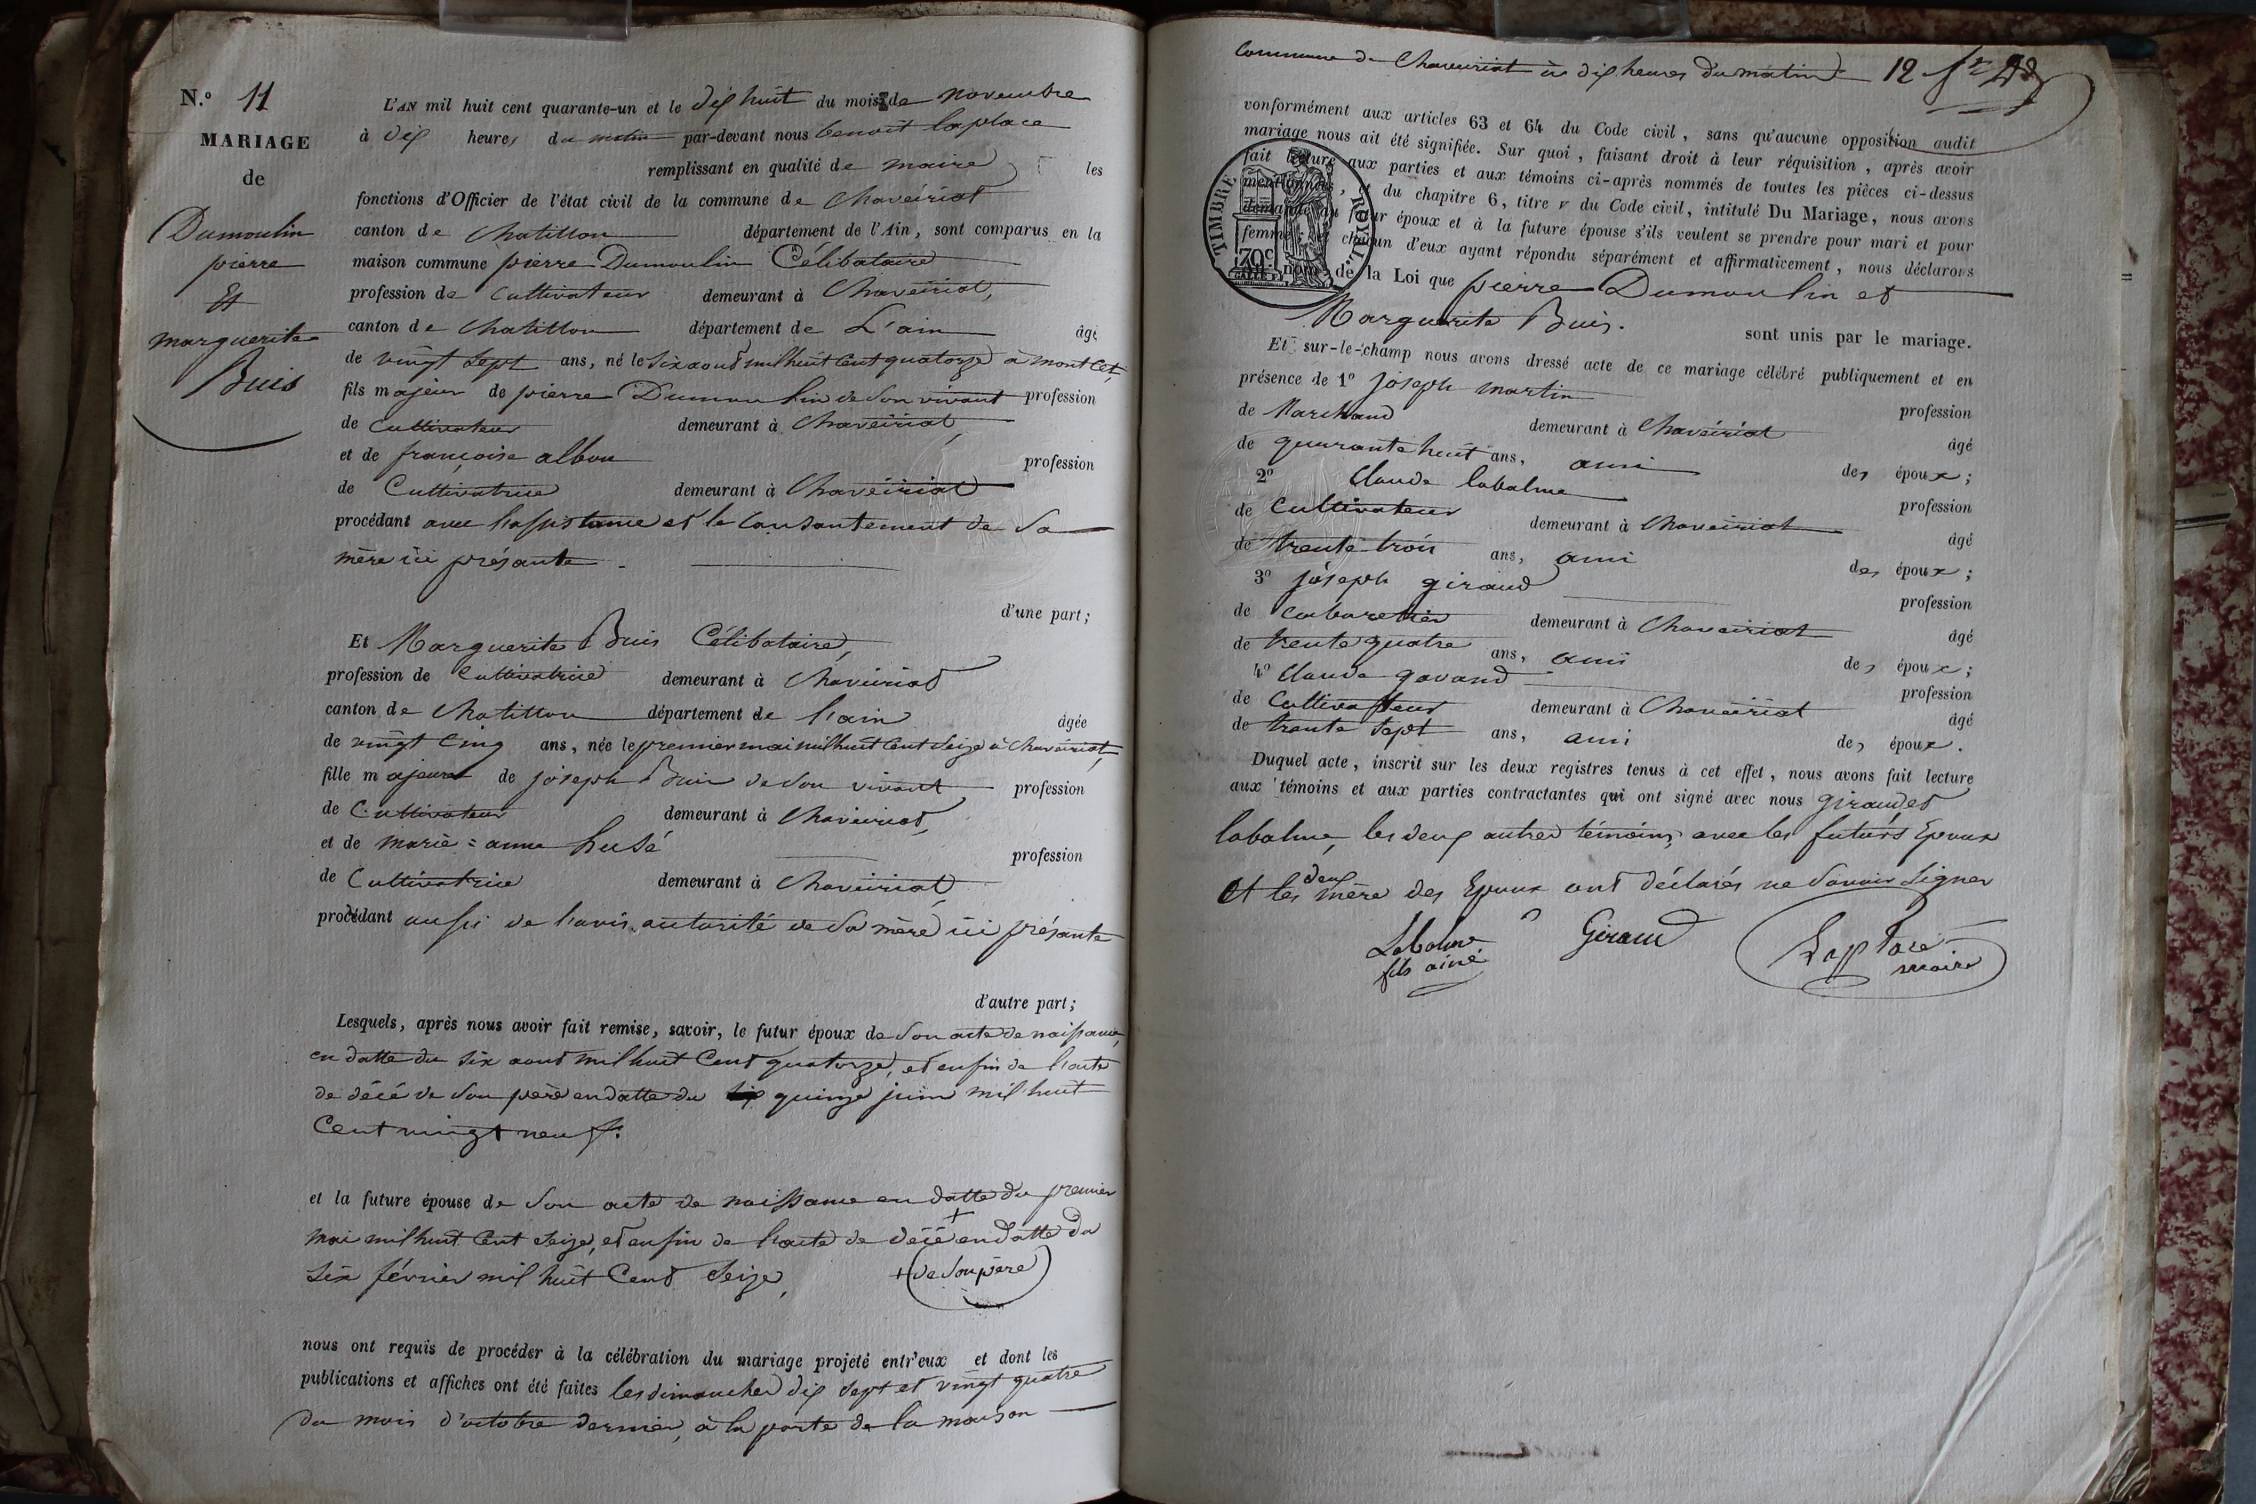 N.º 11
MARIAGE
de
Dumoulin
pierre
Et
marguerite
Buis
L'AN mil huit cent quarante-un et le dix huit du mois de novembre
à dix heures du matin par-devant nous benoit laplace
remplissant en qualité de maire les
fonctions d'Officier de l'état civil de la commune de Chaveiriat
canton de Chatillon département de l'Ain, sont comparus en la
maison commune pierre Dumoulin Célibataire
profession de Cultivateur demeurant à Chaveiriat,
canton de Chatillon département de L'ain âgé
de vingt sept ans, né le six aout mil huit Cent quatorze à montcet,
fils majeur de pierre Dumoulin de son vivant profession
de Cultivateur demeurant à Chaveiriat,
et de françoise albon profession
de Cultivatrice demeurant à Chaveiriat
procédant avec l'assistance et le Consantement de Sa
mère ici présante
d'une part;
Et Marguerite Buis Célibataire,
profession de Cultivatrice demeurant à Chaveiriat
canton de Chatillon département de l'ain âgée
de vingt Cinq ans, née le premier mai mil huit Cent Seize à Chaveiriat,
fille majeure de joseph Buis de son vivant profession
de Cultivateur demeurant à Chaveiriat,
et de marie=anne profession
de Cultivatrice demeurant à Chaveiriat,
procédant aussi de l'avis autorité de Sa mère ici présante
d'autre part;
Lesquels, après nous avoir fait remise, savoir, le futur époux de Son acte de naissance,
en datte du six aout mil huit Cent quatorze, et enfin de l'acte
de décé de Son père en datte du quinze juin mil huit
Cent vingt neuf.
et la future épouse de Son acte de naissance en datte du premier
mai mil huit Cent Seize, et enfin de l'acte de décé + en datte du
six février mil huit Cent Seize,
+ (de Son père)
nous ont requis de procéder à la célébration du mariage projeté entr'eux et dont les
publications et affiches ont été faites les dimanches dix sept et vingt quatre
du mois d'octobre dernier, à la porte de la maison
Commune de Chaveiriat à dix heures du matin. 12
conformément aux articles 63 et 64 du Code civil, sans qu'aucune opposition audit
mariage nous ait été signifiée. Sur quoi, faisant droit à leur réquisition, après avoir
fait lecture aux parties et aux témoins ci-après nommés de toutes les pièces ci-dessus
mentionnées, et du chapitre 6, titre v du Code civil, intitulé Du Mariage, nous avons
demandé au futur époux et à la future épouse s'ils veulent se prendre pour mari et pour
femme; et chacun d'eux ayant répondu séparément et affirmativement, nous déclarons
TIMBRE ROYAL
70c
au nom de la Loi que pierre Dumoulin et
Marguerite Buis. sont unis par le mariage.
Et sur-le-champ nous avons dressé acte de ce mariage célébré publiquement et en
présence de 1º joseph martin profession
de Marchand demeurant à Chaveiriat âgé
de quarante huit ans, ami des époux;
2º Claude labalme profession
de Cultivateur demeurant à Chaveiriat âgé
de trente trois ans, ami des époux;
3º joseph giraud profession
de Cabaretier demeurant à Chaveiriat âgé
de trente quatre ans, ami des époux;
4º Claude gavand profession
de Cultivateur demeurant à Chaveiriat âgé
de trante Sept ans, ami des époux.
Duquel acte, inscrit sur les deux registres tenus à cet effet, nous avons fait lecture
aux témoins et aux parties contractantes qui ont signé avec nous giraud et
labalme, les deux autres témoins, avec les futurs Epoux
et les deux mère des Epoux ont déclarés ne Savoir Signer
Labalme Giraud Laplace
fils ainé maire